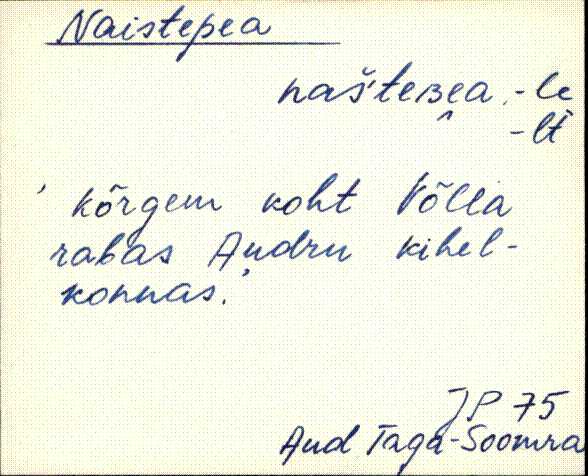 Naistepea
našteʙea, -le
-lt
' kõrgem koht Võlla
rabas Audru kihel-
konnas.'
JP 75
Aud Taga-Soomra